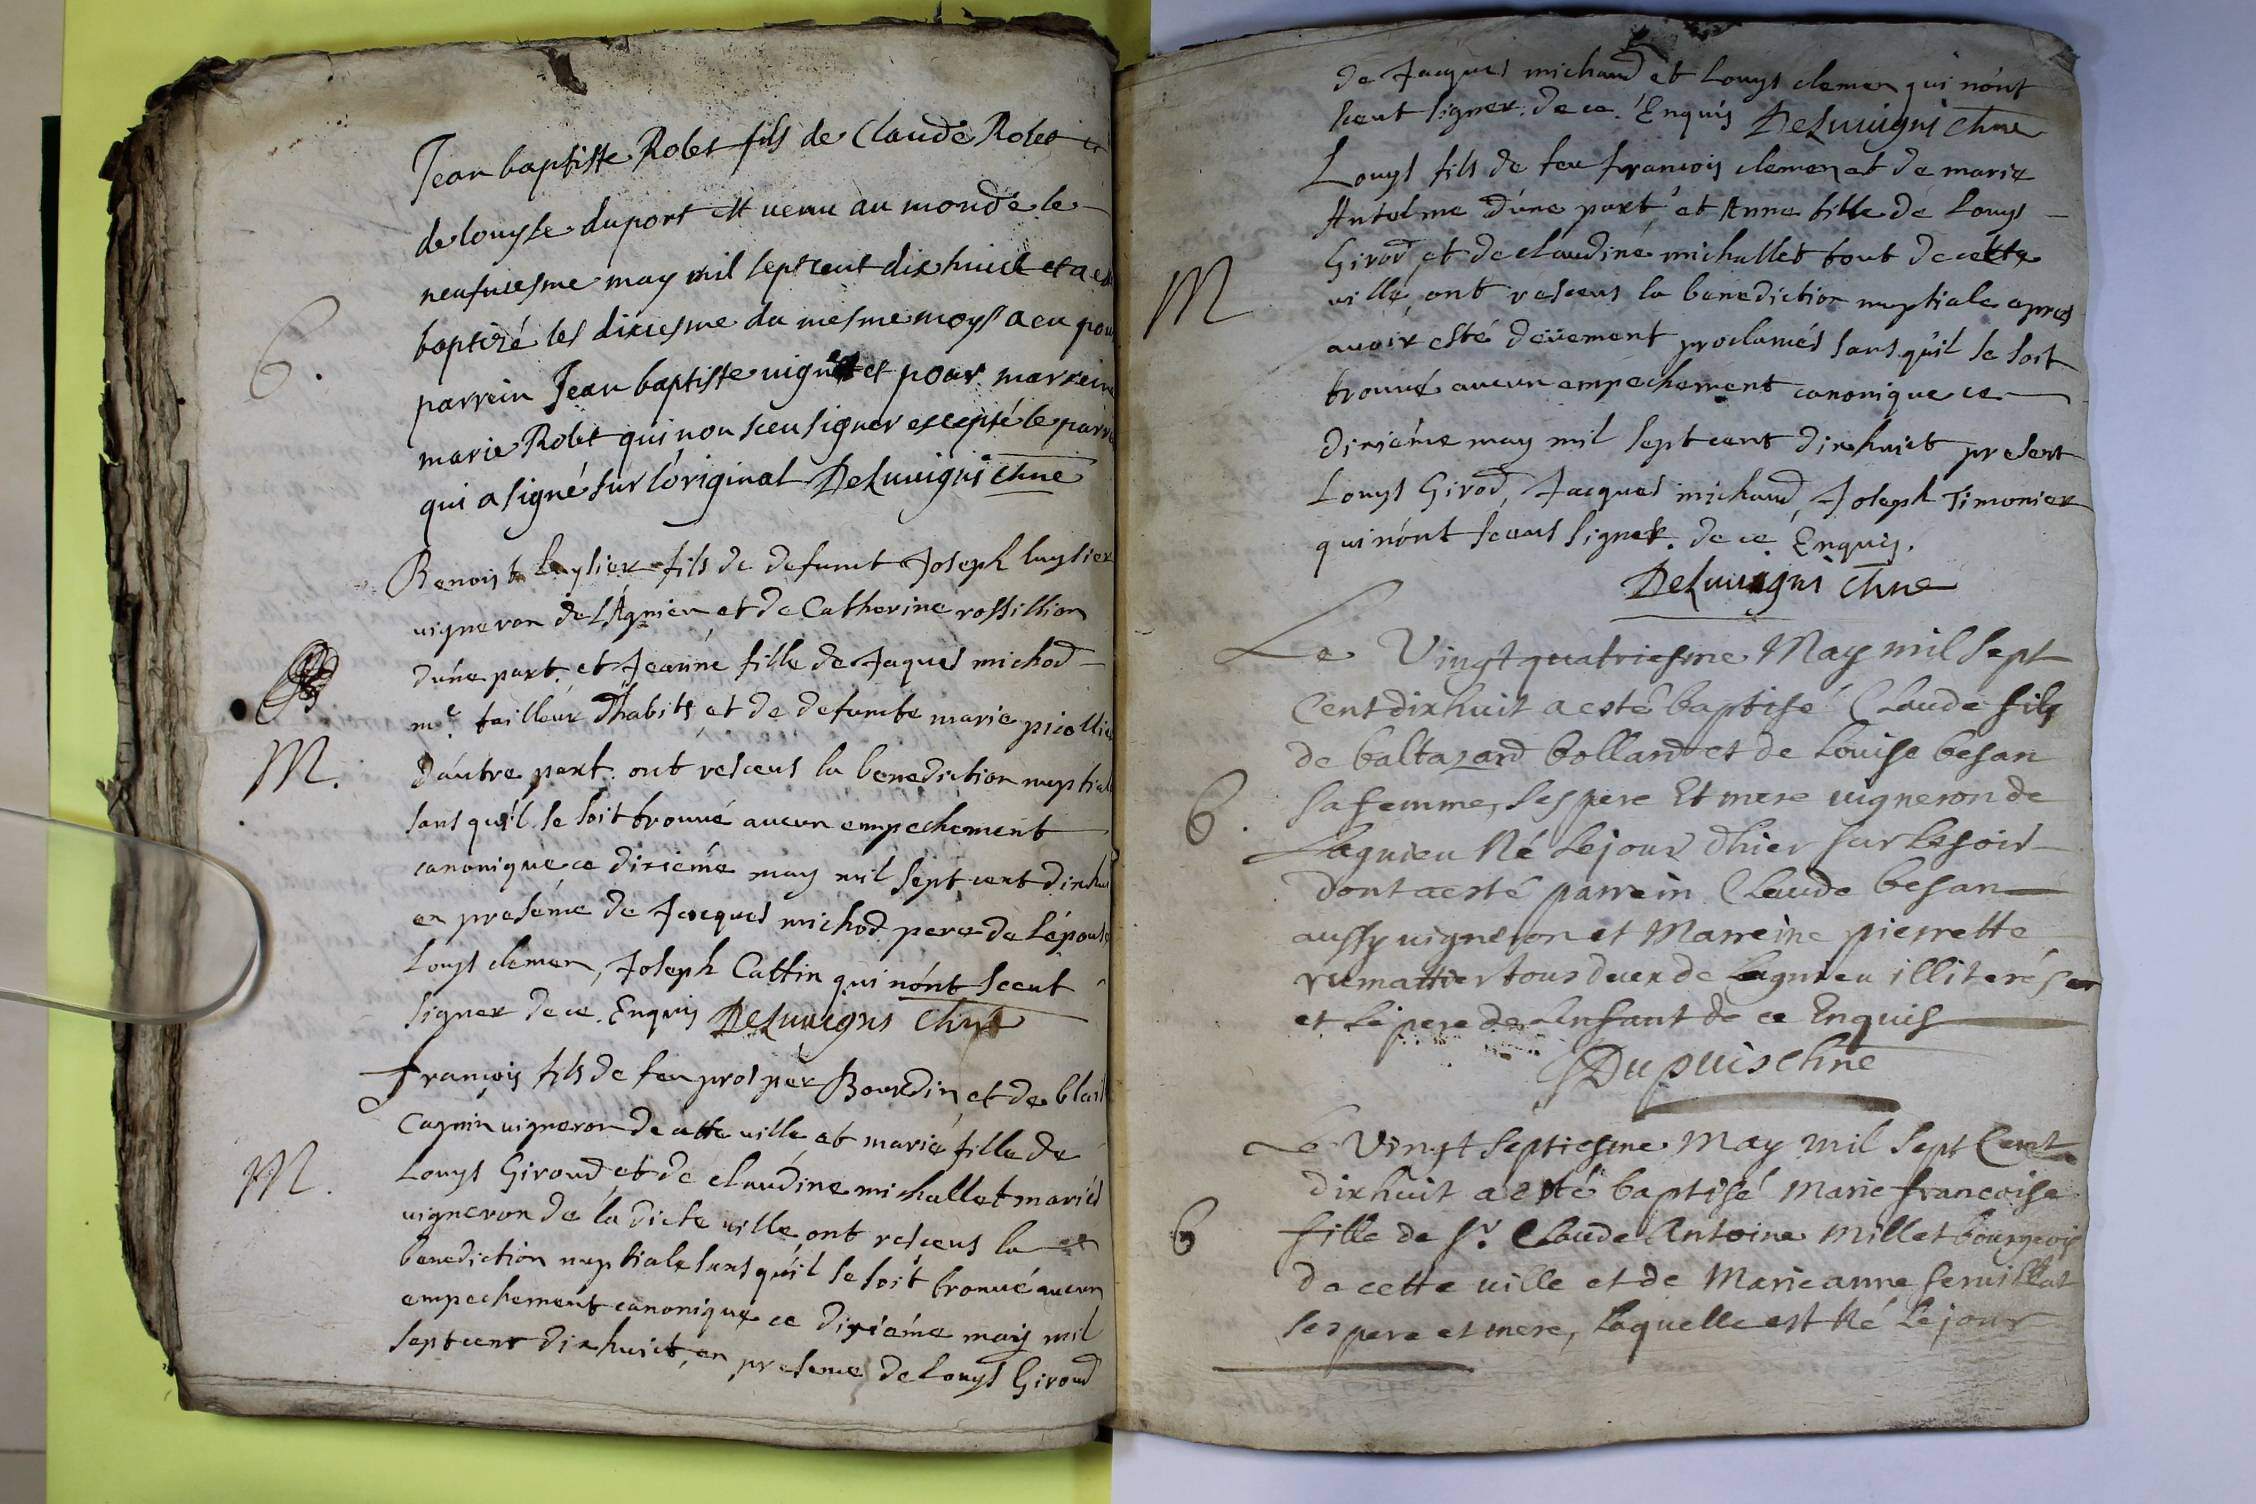 Jean baptiste Robet fils de Claude Robet et
de louyse duport est venu au monde le
neufuiesme may mil septcent dix huict et a esté
B.
baptizé les dixiesme du mesme moys a eu pour
parrein Jean baptiste uignet et pour marreine
marie Robet qui non sceu signer excepté le parrein
qui a signé sur l'original Deluuigni chne
Benoist luysier fils de defunct Joseph luysier
uigneron de lAgnieu et de Catherine rossillion
d'une part. et Jeanne fille de Jaques michod
me. tailleur d'habits et de defuncte marie
M.
d'autre part. ont resceus la benediction nuptial
sans qu'il se soit trouué aucun empechement
canonique ce dixiéme may mil sept cent dixhu
en preséme de Jacques michod pere de l'épouse
Louys clemen, Joseph Cattin qui n'ont sceut
signer de ce. Enquis Deluuigni Chne
francois fils de feu prosper Bourdin et de
Cagnin uigneron de cette uille et marie fille de
M.
Louys Giroud et de claudine michallet mariés
uigneron de la dicte uille, ont resceus la
benediction nuptiale sans qu'il se soit trouué aucun
empechement canonique ce dixiéme may mil
septcent dixhuict, en presence de Louys Giroud
de Jacques michaud et Louys clemen qui n'ont
sceut signer. de ce. Enquis Deluuigni chne
Louys fils de feu francois clemen et de marie
Antelme d'une part et Anne fille de Louys
Girod, et de claudine michallet tout de cette
M
uille, ont resceus la benediction nuptiale apres
auoir esté deüement proclamés sans qu'il se soit
trouué aucun empechement canonique ce
dixiéme may mil septcent dixhuict present
Louys Girod, Jacques michaud, Joseph Timonier
qui n'ont sceus signer. de ce Enquis.
Deluuigni chne
Le Vingtquatriesme May mil sept
Cent dixhuit a esté baptisé Claude fils
de baltazard bolland et de Louise besan
sa femme, ses pere Et mere uigneron de
B.
Lagnieu Né Le jour d'hier sur Le soir
dont a esté parrein Claude besan
aussy uigneron et Marreine pierrette
rumattier tous deux de Lagnieu illiterés
et Le pere de Lenfant de ce Enquis
Dupuis chne
Le Vingt septiesme May mil sept Cent
dixhuit a esté baptisé Marie francoise
B
fille de sr. Claude Antoine Millet bourgeois
de cette uille et de Marie anne seruillat
ses pere et mere, Laquelle est Né Le jour